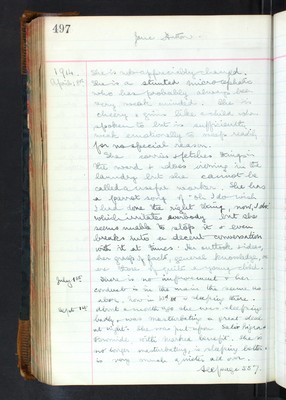 497
Jane Antone
1914.
April 1st
She is not appreciably changed.
She is a stunted microcephale
who has probably always been
very weak minded. She is
cheery & grins like a child when
spoken to but is sufficiently
weak emotionally to weep easily
for no special reason.
She carries & fetches things in
the ward & does ironing in the
laundry but she cannot be
called a useful worker. She has
a parrot song of "oh I do wish
I had done the right thing, now, I do"
which irritates everybody but she
seems unable to stop it & even
breaks into a decent conversation
with it at times. In outlook, ideas,
her grasp of facts, general knowledge, is
as that of quite a young child.
July 1st
There is no improvement & her
conduct is in the main the same as
above. Now in W & sleeping there.
Sept 1st
About a month ago she was sleeping
badly & was masturbating a great deal
at night. She was put upon
Bromide, with marked benefit. She is
no longer masturbating, is sleeping better &
is very much quieter all over.
See page 257.